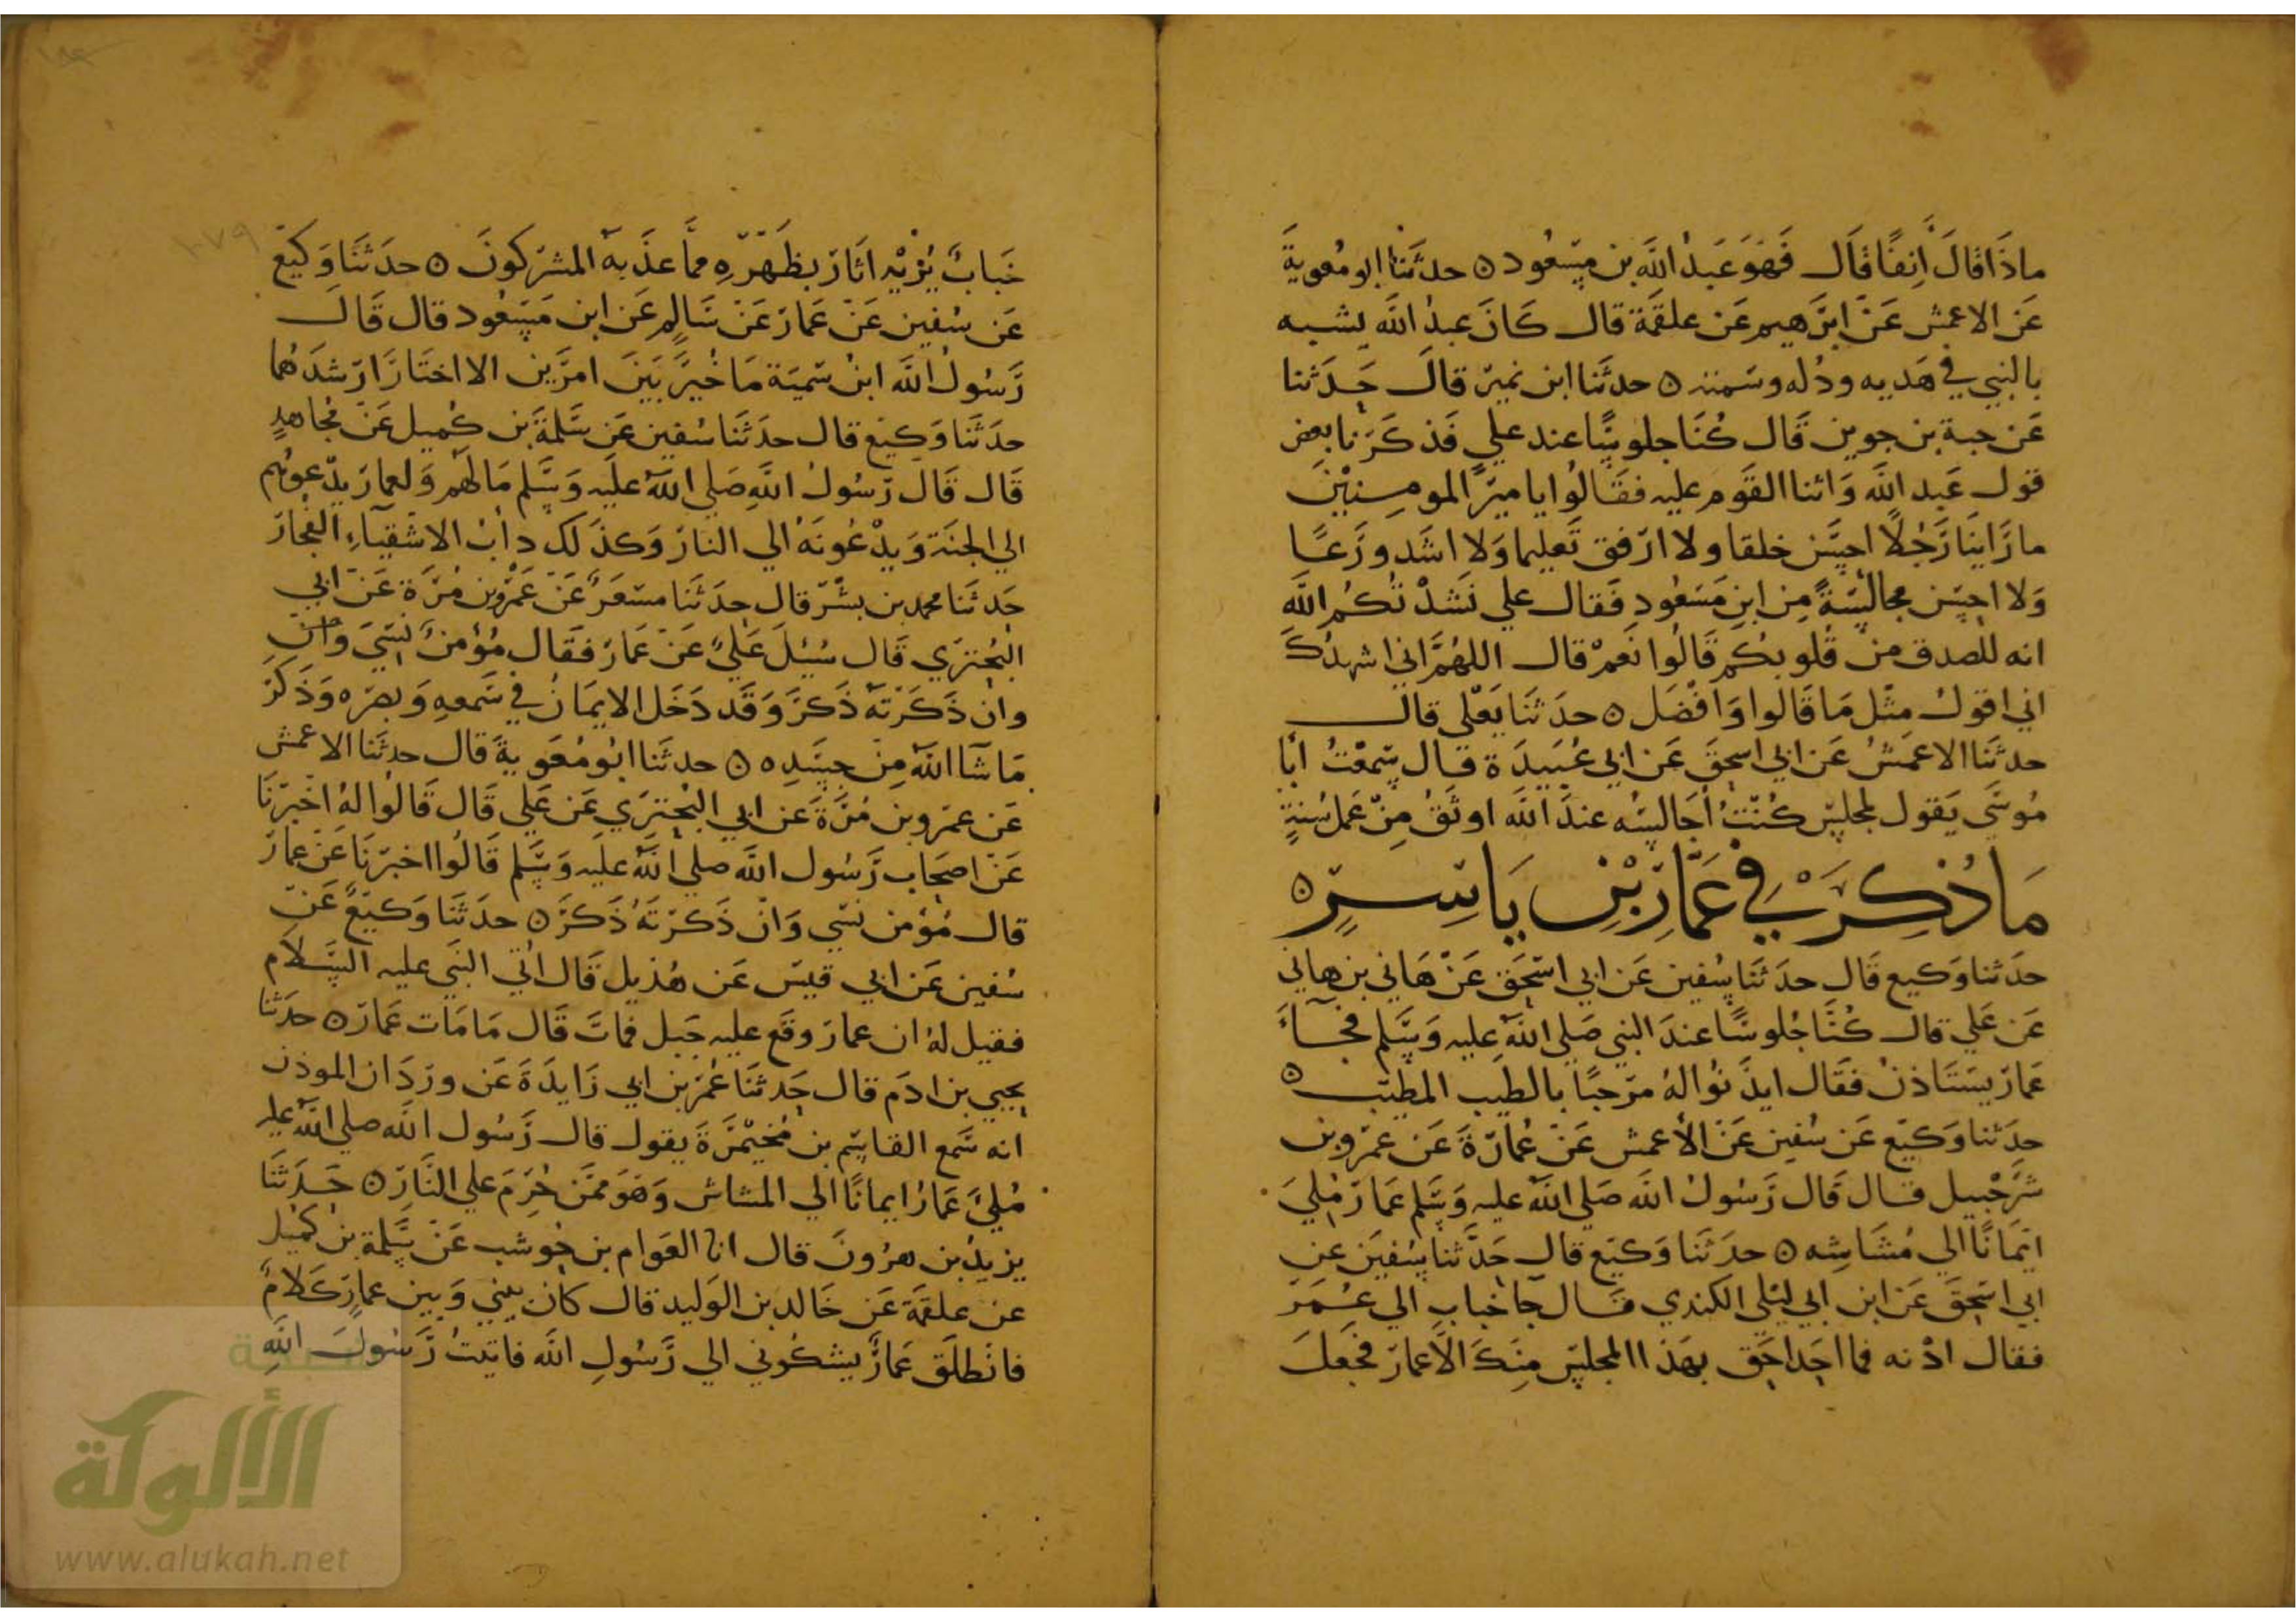 ماذَا قالَ اٰنِفًا قَال فَهُوَ عَبدُ اللَّه بن مسعُود ه حدثَنا ابو مُعوِيةَ
عَن الاعمش عَن ابرٰهيم عَن علقمَة قال كَانَ عبدُ اللَّه يشبه
بالنبي في هَديه ودُله وسَمته ه حدثنَا ابن نمير قالَ حَدَثنا
عَن حبة بن جوين قَال كُنَا جلوسًا عند علي فَذكَرنا بعض
قول عَبد اللَّه وَاثنا القَوم عليه فقَالُوا يا ميرَ المومنِينَ
ما رَاينَا رَجُلًا احسَن خلقا ولا ارفق تَعليما وَلا اشَد ورَعًا
وَلا احسَن مجالسَةً مِن ابن مَسَعُودِ فَقال علي نَشدْ تُكُم اللَّهَ
انه للصدق من قُلوبكم قَالُوا نَعَمْ قال اللهُمَّ اني اشهدُكَ
اني اقولُ مثْل مَا قَالوا وَافْضَل ه حدَثنَا يَعْلى قال
حدثنَا الاعمَشُ عَن ابي اسحٰقَ عَن ابي عُبَيدَة قال سَمعْتُ ابَا
مُوسَى يَقول لمجلس كُنتُ اُجَالسُه عندَ اللَّه اوثَقُ مِنْ عَمل سُنةٍ
مَا ذُكِرَ فِي عَمَّارِ بْنِ يَاسِرٍ ه
حدَثنا وَكيع قَال حدثنَا سُفين عَن ابي اسحٰق عَنْ هَاني بن هاني
عَن عَلي قال كُنَّا جُلوسًا عندَ النبي صَلى اللَّه عليه وَسَلم فجَآءَ
عَمار يستَاذنُ فقَال ايذَنُوا لهُ مَرحبًا بالطَيب المطيب ه
حدَثنا وَكيَع عَن سُفين عَنْ الأعمش عَنْ عُمارَةَ عَن عمرو بن
شرَحْبيل قال قَال رَسُولُ اللَّه صَلى اللَّهُ عليه وَسَلم عَمارَ مُلِيَ
ايمَانًا الي مُشَاشِه ه حدَثَنا وَكيَع قال حَدَّثنا سُفيَن عن
ابي اسحٰقَ عَن ابن ابي ليْلى الكندي قَال جَا خبابِ الي عُمَرَ
فقال ادْنه فما احَد احَق بهَذا المجلس مِنكَ الَا عمار فجَعلَ
خَبابٌ يُرْيه اثَارَ بظَهْرِه مما عذَبهُ المشركونَ ه حدَثنَا وَكيَع
عَن سُفين عَنْ عَمارَ عَنْ سَالِم عَن ابن مَسعُود قال قَالَ
رَسُولُ اللَّه ابنُ سُميَة مَا خُيرَ بَينَ امرَين الا اختَارَ ارشَدَهُما
حدَثَنا وَكيَع قال حدَثَنا سُفين عَن سَلمةَ بن كُهيل عَن مُجاهدٍ
قَال قَالَ رَسُولُ اللَّه صَلي اللَّهُ عَليه وَسَلم مَا لهَم وَلعمارَ يدْعوهُم
الي الجنَة وَيدْعُونَهُ الي النارَ وَكذَلكَ دابُ الاشْقيَآءِ الفجارَ
حَدثَنا محمد بن بشر قال حدَثَنا مسَعَرٌ عَنْ عَمْرو بن مُرَة عَن ابي
البُختري قَال سُئلَ عَلي عَنْ عَمارَ فقَال مُؤمنٌ نَسِيَ وَان
وان ذَكَرتَهُ ذَكرَ وَقَد دَخَل الايمَانُ في سَمعهِ وَبصَره وَذَكَرَ
مَا شَا اللَّهُ مِنْ جسَدِه ه حدثَنا ابُو مُعَويةَ قال حدثَنا الاعمش
عَن عمَرو بن مُرَةَ عَن ابي البُختري عَن عَلي قَال قَالُوا لهُ اخبرنَا
عَنْ اصحَاب رَسُول اللَّه صلي اللَّهُ عليه وَسَلم قَالُوا اخبرنَا عَنْ عمارَ
قال مُؤمن نَسي وَانْ ذَكَرتَهُ ذَكرَ ه حدَثنَا وَكيَعٌ عَن
سُفين عَن ابي قيس عَن هُذيل قَال اُتي النَبي عليه السَلَام
فقيل لهُ ان عمارَ وقَع عليه جَبل فماتَ قَال مَا مَات عَمارَ ه حدَثنا
يحيي بن ادَم قال حَدثَنا عُمَر بن ابي زَايدَةَ عَن وردَان الموذن
انه سَمع القاسِم بن مُخيمرَةَ يقول قال رَسُول اللَّه صلي اللَّه عليه
مُليَ عَمارُ ايمانًا الي المشاش وَهوَ ممَن حُرِمَ علي النَارِ ه حَدَثَنَا
يزيدُ بن هرُونَ قال انا العَوام بن حَوشب عَنْ سَلمة بن كهيل
عن علقمَة عَن خَالد بن الوَليد قال كان بيني وَبين عمار كَلامٌ
فانْطلَق عَمارٌ يشكُوني الي رَسُولِ اللَّه فاتيتُ رَسُولَ اللَّهِ
١٧٩
شبكة
الألوكة
www.alukah.net